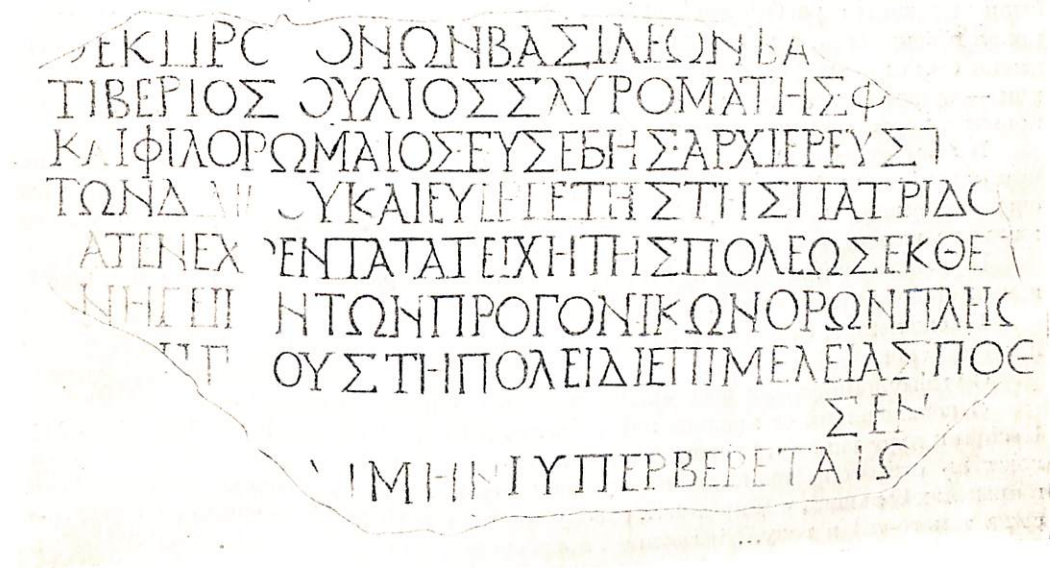 ΕΚ ΠΡΟ ΟΝΩΝ ΒΑΣΙΛΕΩΝ ΒΑ
ΤΙΒΕΡΙΟΣ ΟΥΛΙΟΣ ΣΑΥΡΟΜΑΤΗΣ Φ
ΚΑΙ ΦΙΛΟΡΩΜΑΙΟΣ ΕΥΣΕΒΗΣ ΑΡΧΙΕΡΕΥΣ
ΤΩΝ ΟΥ ΚΑΙ ΕΥΕΡΓΕΤΗΣ ΤΗΣ ΠΑΤΡΙΔΟ
ΑΤΕΝΕΧ ΕΝΤΑ ΤΑ ΤΕΙΧΗ ΤΗΣ ΠΟΛΕΩΣ ΕΚ ΘΕ
ΤΩΝ ΠΡΟΓΟΝΙΚΩΝ ΟΡΩΝ ΠΛΗΟ
ΟΥΣ ΤΗ ΠΟΛΕΙ ΔΙ ΕΠΙΜΕΛΕΙΑΣ ΠΟΘ
ΣΕΝ
ΜΗΝΙ ΥΠΕΡΒΕΡΕΤΑΙΟ